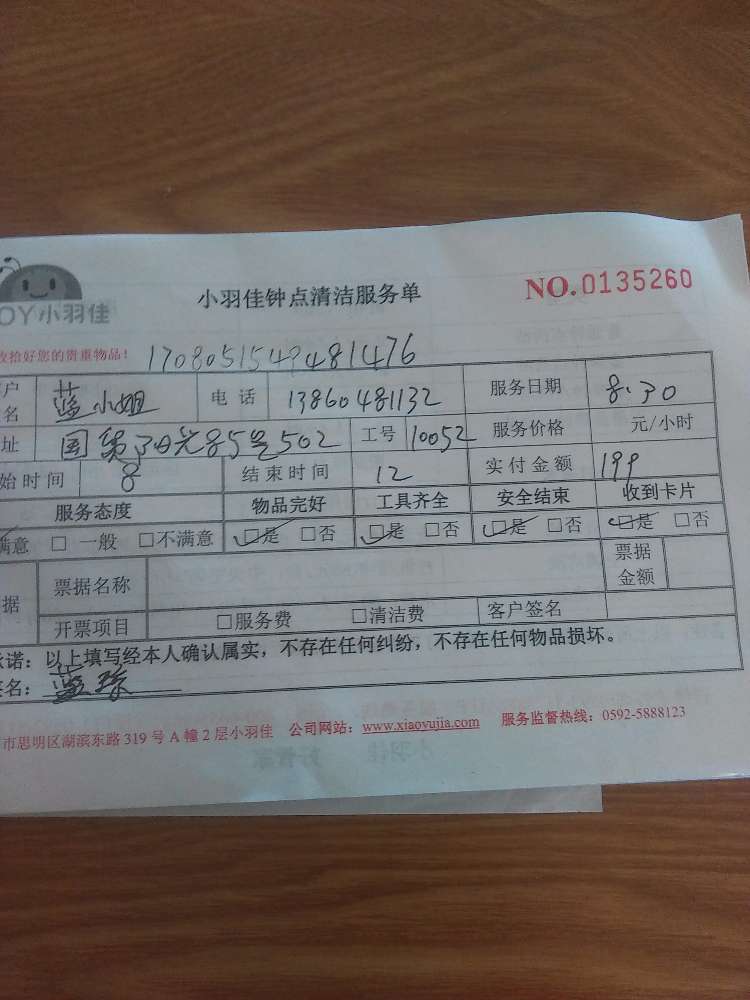 小羽佳钟点清洁服务单
NO.0135260
OY小羽佳
收拾好您的贵重物品！ 1708051549481476
户名 蓝小姐 电话 13860481132 服务日期 8.30
址 国贸阳光85号502 工号 10052 服务价格 元/小时
始时间 8 结束时间 12 实付金额 199
服务态度 物品完好 工具齐全 安全结束 收到卡片
满意 □ 一般 □不满意 □是 □否 □是 □否 □是 □否 □是 □否
据 票据名称 票据金额
开票项目 □服务费 □清洁费 客户签名
承诺：以上填写经本人确认属实，不存在任何纠纷，不存在任何物品损坏。
签名：蓝
市思明区湖滨东路319号A幢2层小羽佳 公司网站：www.xiaoyujia.com 服务监督热线：0592-5888123